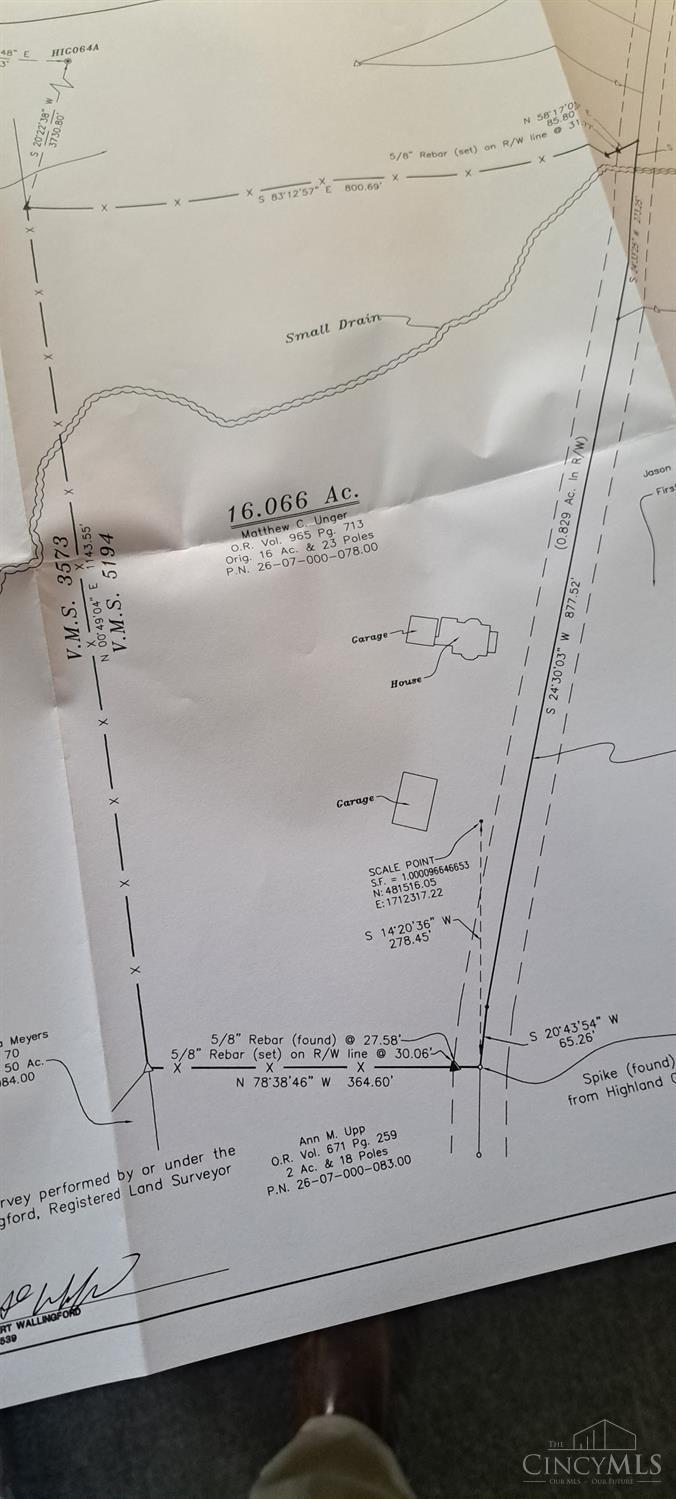 48" E
3'
HIC064A
S 20°22'38" W
3730.80'
N 58°17'0
85.80'
5/8" Rebar (set) on R/W line @ 31
S 83°12'57" E 800.69'
Small Drain
(0.829 Ac. In R/W)
16.066 Ac.
Matthew C. Unger
O.R. Vol. 965 Pg. 713
Orig. 16 Ac. & 23 Poles
P.N. 26-07-000-078.00
Jason
First
V.M.S. 3573
N 00°49'04" E 1143.55'
V.M.S. 5194
Garage
House
S 24°30'03" W 877.52'
Garage
SCALE POINT
S.F. = 1.000096646653
N: 481516.05
E: 1712317.22
S 14°20'36" W
278.45'
S 20°43'54" W
65.26'
5/8" Rebar (found) @ 27.58'
5/8" Rebar (set) on R/W line @ 30.06'
N 78°38'46" W 364.60'
Meyers
70
50 Ac.
84.00
Spike (found)
from Highland
Ann M. Upp
O.R. Vol. 671 Pg. 259
2 Ac. & 18 Poles
P.N. 26-07-000-083.00
rvey performed by or under the
gford, Registered Land Surveyor
RT WALLINGFORD
539
THE
CINCYMLS
OUR MLS - OUR FUTURE